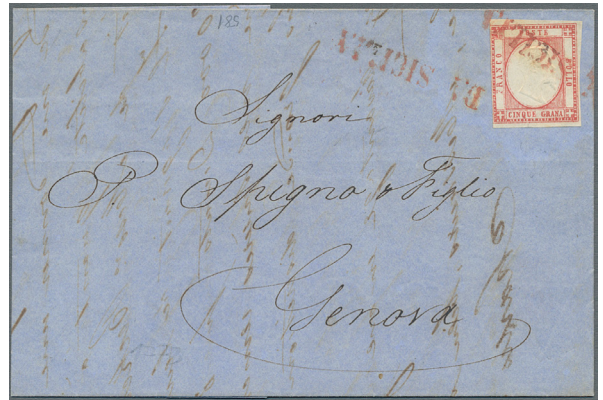 185
DA SICILIA
POSTE
FRANCO
BOLLO
CINQUE GRANA
Signori
P. Spigno & Figlio
Genova